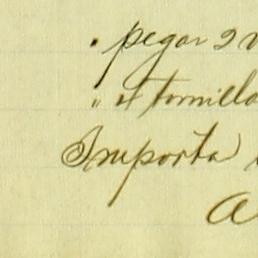 . pegar 2
" 4 tornillo
Importa
A